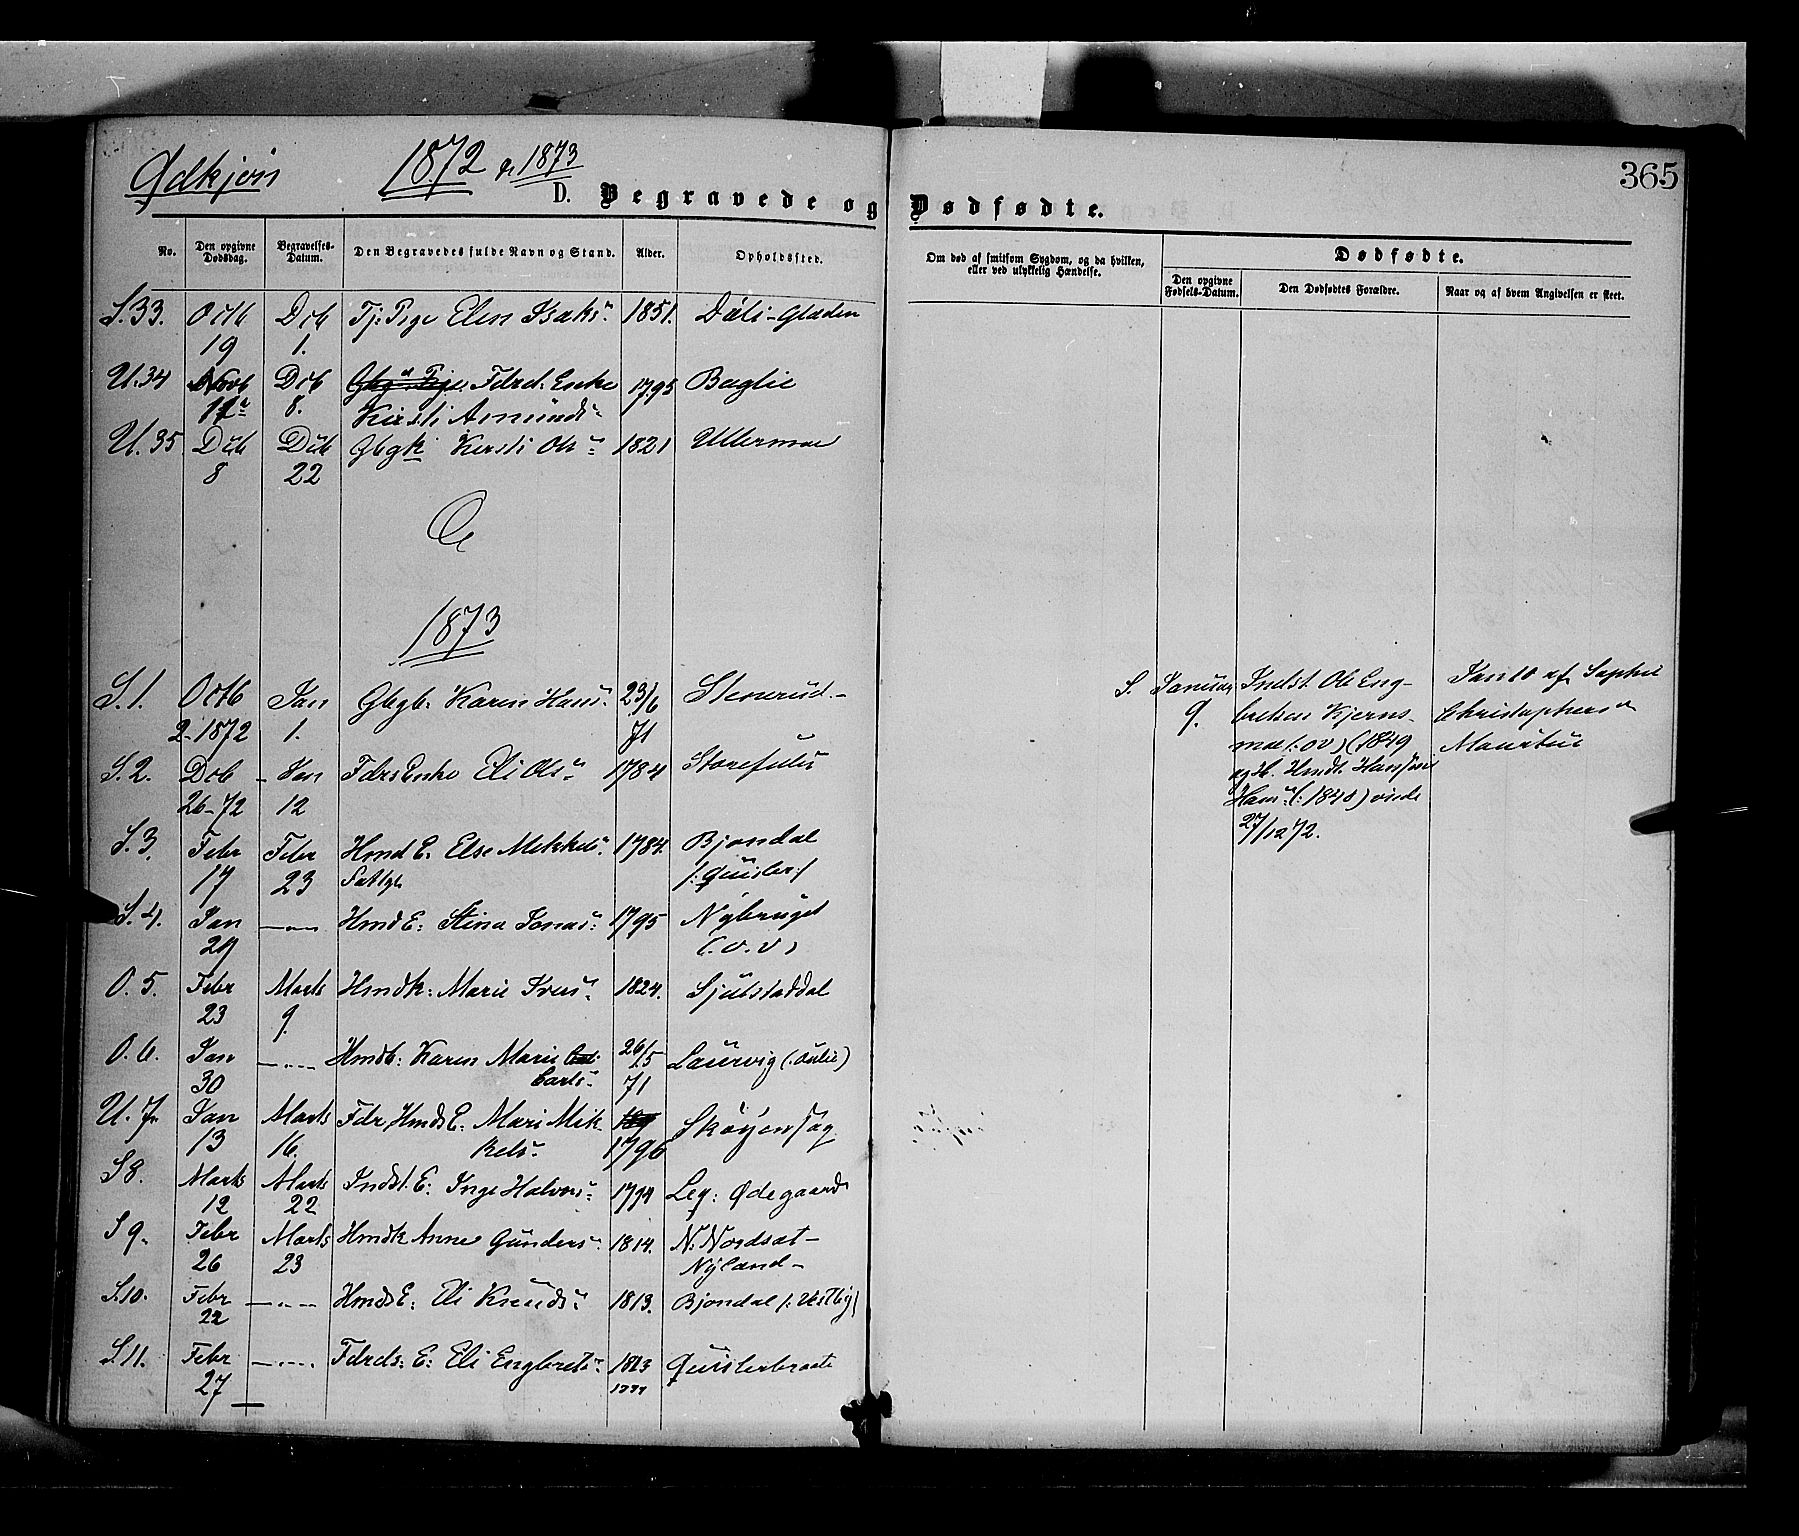 365
Qdkjön 1872 & 1873
D. Begravede og Dødfødte.
No. Den opgivne Dødsdag. Begravelses-Datum. Den Begravedes fulde Navn og Stand. Alder. Opholdssted.
Om død af smitsom Sygdom, og da hvilken, eller ved ulykkelig Hændelse.
Dødfødte.
Den opgivne Fødsels-Datum. Den Dødfødtes Forældre. Naar og af hvem Angivelsen er skeet.
S. 33. Octb Dcb Tj: Pige Elen Isaks 1851. Dæli-Gladen
19 1.
U. 34 Novb Dcb Fdrd. Enke 1795 Baglie
17 8. Kirsti Amunds
U. 35 Dcb Dcb Gbgk Kersti Ols 1821 Ullermoe
8 22
1873
S. 1. Octb Jan Gbgb: Karen Hans 23/6 Stenerud
2. 1872 1. 71
S. 2. Dcb Jan Fdrs Enke Eli Ols 1784
26-72 12
S. 3. Febr Febr Hmd E. Else Mikkels 1784. Bjøndal
17 23 Fattgl /: Quisler :/
S. 4. Jan Hmd E: Stina Jonas 1795 Nybruget
29 (.o.v)
O. 5. Febr Marts Hmdk: Marie Ivers 1824. Sjulstaddal
23 9.
O. 6. Jan Hmdb: Karen Marie 26/5 Laurvig
30 Carls 71
U. 7. Jan Marts Fdr Hmds E. Mari Mik- Skøyensag
13 16. kels 1796
S 8. Marts Marts Indst. E: Inge Halvors 1794 Leg: Ødegaard
12 22
S 9. Febr Marts Hmdk Anne Gunders 1814. N. Nordset
26 23 Nyland
S. 10. Febr Hmds E: Eli Knuds 1813. Bjøndal /: Vestby)
22
S. 11. Febr Fdrds: E: Eli Engbrets 1813 Quislerbraate
27
S. Januar Indst. Ole Eng- Jan 10 af Sophie
9. bretsen Kjerns- Christophers
moe (: ov) (1849
og H. Hmdt.
Hans (: 1840) viede
27/12 72.